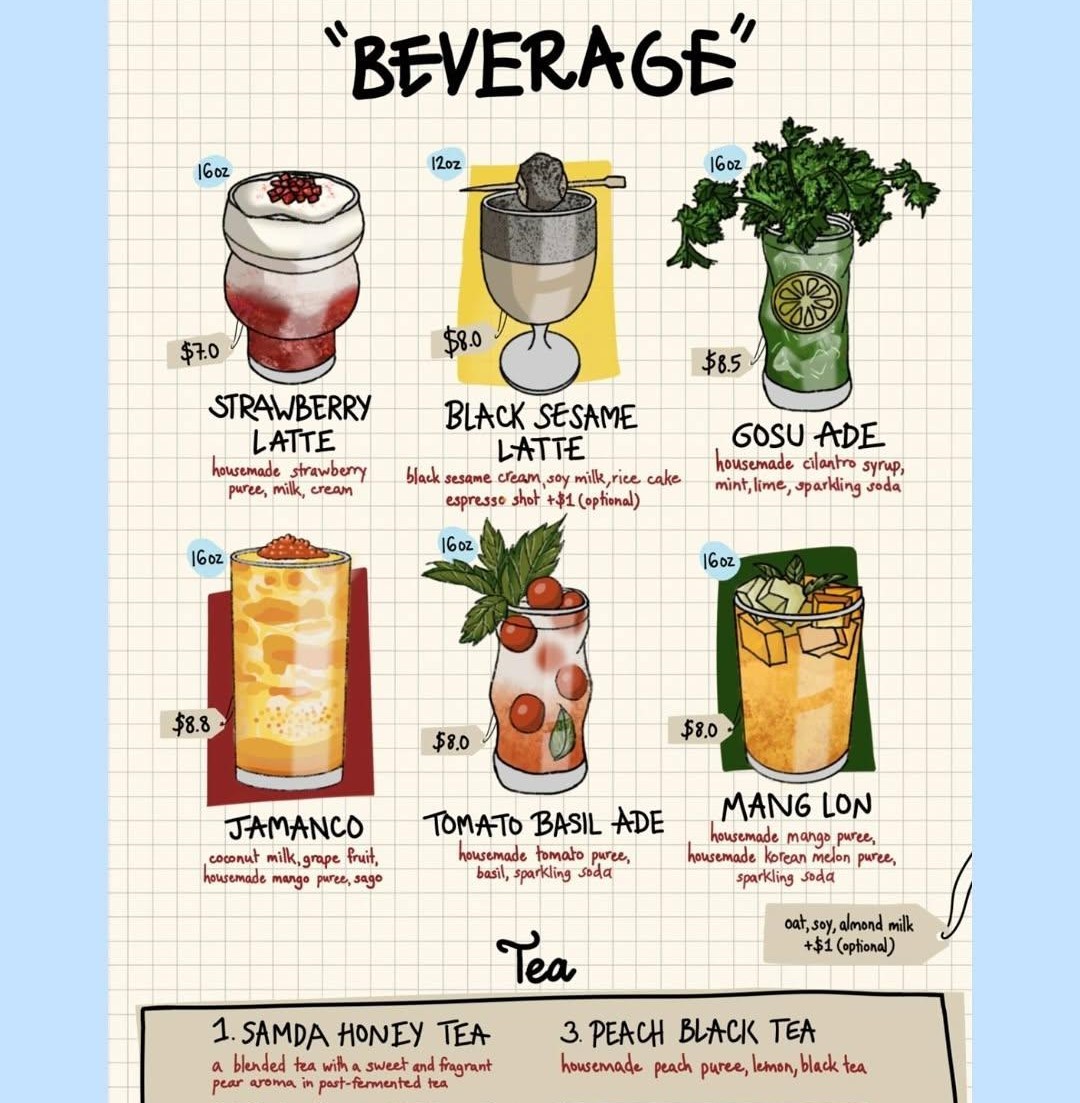 "BEVERAGE"
16oz
$7.0
STRAWBERRY
LATTE
housemade strawberry
puree, milk, cream
12oz
$8.0
BLACK SESAME
LATTE
black sesame cream, soy milk, rice cake
espresso shot +$1 (optional)
16oz
$8.5
GOSU ADE
housemade cilantro syrup,
mint, lime, sparkling soda
16oz
$8.8
JAMANCO
coconut milk, grape fruit,
housemade mango puree, sago
16oz
$8.0
TOMATO BASIL ADE
housemade tomato puree,
basil, sparkling soda
16oz
$8.0
MANG LON
housemade mango puree,
housemade korean melon puree,
sparkling soda
oat, soy, almond milk
+$1 (optional)
Tea
1. SAMDA HONEY TEA
a blended tea with a sweet and fragrant
pear aroma in post-fermented tea
3. PEACH BLACK TEA
housemade peach puree, lemon, black tea